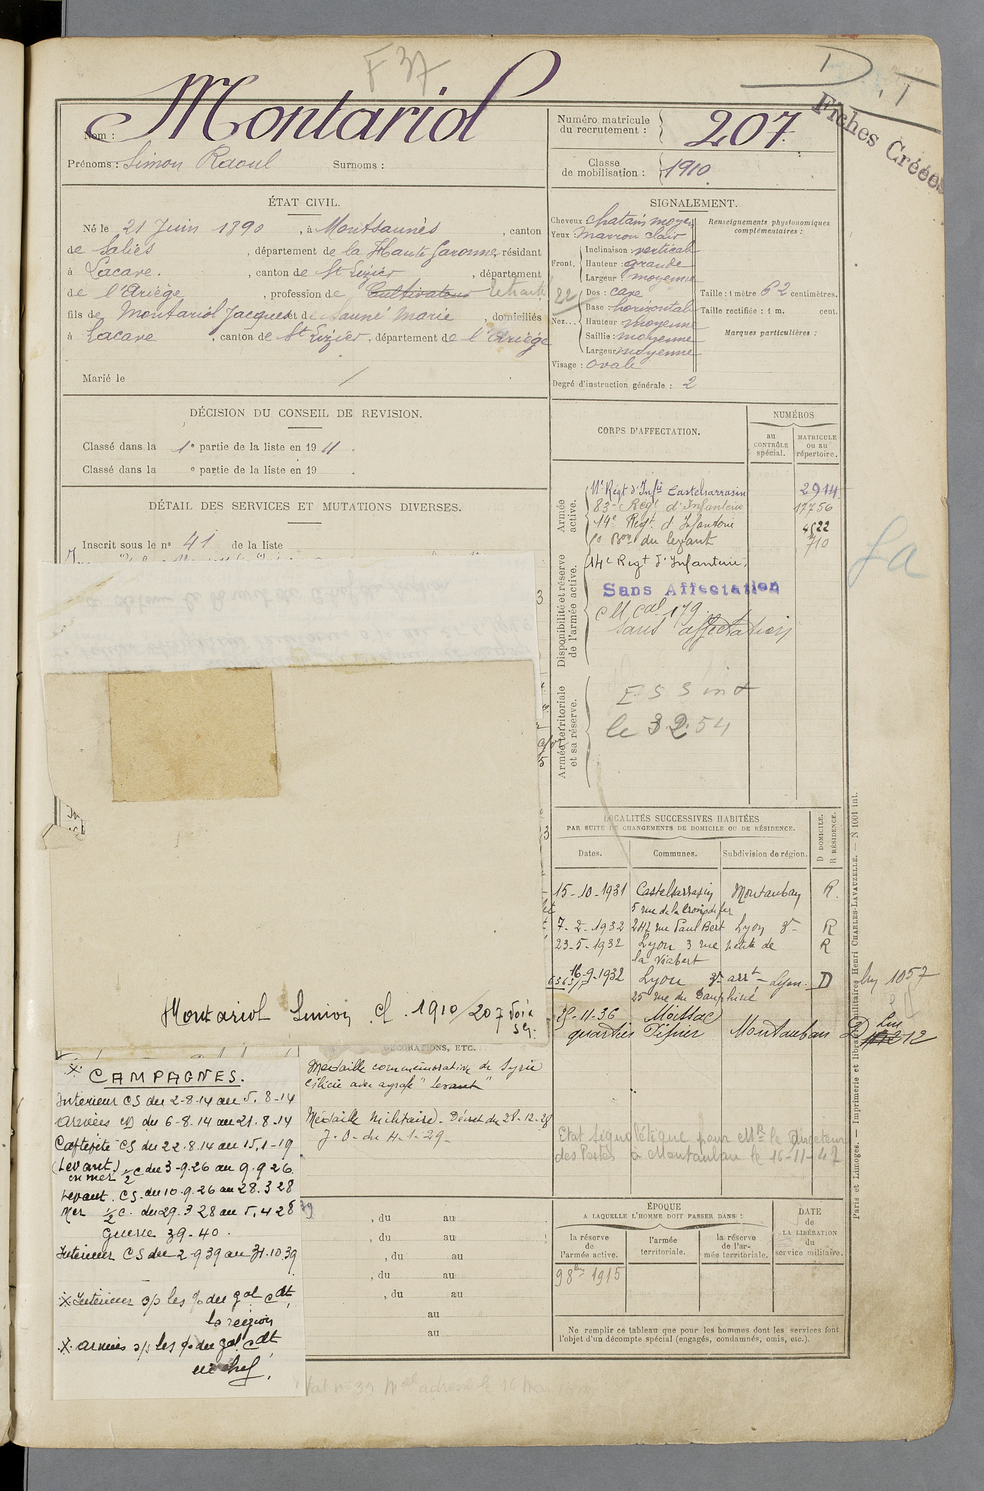 F 37
D.T
Fiches Créées
Nom : Montariol
Prénoms : Simon Raoul Surnoms :
Numéro matricule du recrutement : 207
Classe de mobilisation : 1910
ÉTAT CIVIL.
Né le 21 Juin 1890, à Montsaunès, canton
de Salies, département de la Haute Garonne, résidant
à Lacave, canton de St Lizier, département
de l'Ariège, profession de Cultivateur retraité
fils de Montariol Jacques et de Sauné Marie, domiciliés
à Lacave, canton de St Lizier, département de l'Ariège
Marié le /
SIGNALEMENT.
Cheveux chatain moyen
Yeux Marron clair
Front. Inclinaison verticale
Hauteur : grande
Largeur : moyenne
22
Nez... Dos : cave
Base horizontale
Hauteur moyenne
Saillie : moyenne
Largeur moyenne
Visage : ovale
Degré d'instruction générale : 2
Renseignements physionomiques complémentaires :
Taille : 1 mètre 62 centimètres.
Taille rectifiée : 1 m. cent.
Marques particulières :
DÉCISION DU CONSEIL DE REVISION.
Classé dans la 1e partie de la liste en 1911.
Classé dans la e partie de la liste en 19 .
DÉTAIL DES SERVICES ET MUTATIONS DIVERSES.
Inscrit sous le no 41 de la liste
CORPS D'AFFECTATION.
NUMÉROS
au CONTRÔLE spécial.
MATRICULE ou au répertoire.
Armée active.
11e Régt d'Infie Castelsarrasin 2914
83e Régt d'Infanterie 17756
14e Régt d'Infanterie 4522
Bon du levant 710
Disponibilité et réserve de l'armée active.
14e Regt d'Infanterie.
Sans Affectation
c M cal 179
Sans affectation
Armée territoriale et sa réserve.
le 3 2 54
fa
LOCALITÉS SUCCESSIVES HABITÉES
PAR SUITE DE CHANGEMENTS DE DOMICILE OU DE RÉSIDENCE.
Dates. Communes. Subdivision de région. D DOMICILE. R RÉSIDENCE.
15-10-1931 Castelsarrasin Montauban R.
5 rue de la Croix de fer
7-2-1932 247 rue Paul Bert Lyon R
23-5-1932 Lyon 3 rue R
16-9-1932 Lyon 3e arrt Lyon. D
25 rue du Dauphiné
-11-36 Moissac
quartier Montauban D
Montariol Simon Cl. 1910/207
DÉCORATIONS, ETC.
Médaille commémorative de Syrie
Cilicie avec agrafe "Levant"
Médaille Militaire. Décret du 28-12-28
J.O. du 4-1-29
Etat signalétique pour Mr le Directeur
des Postes à Montauban le 16-11-47
CAMPAGNES.
Intérieur CS du 2-8-14 au 5.8-14
Armées CD du 6-8.14 au 21.8-14
Captivité CS du 22.8.14 au 15.1-19
(Levant) en mer 1/2 C du 3-9.26 au 9.9 26
Levant. CS. du 10.9.26 au 28.3 28
Mer 1/2 C. du 29.3 28 au 5.4 28
Guerre 39-40.
Intérieur CS du 2-9 39 au 31.10 39
Intérieur s/s les o/ du gal cdt
la region
Armées s/s les o/ du gal cdt
en chef.
, du au
, du au
, du au
, du au
, du au
au
au
ÉPOQUE
A LAQUELLE L'HOMME DOIT PASSER DANS :
la réserve de l'armée active.
l'armée territoriale.
la réserve de l'armée territoriale.
DATE de LA LIBÉRATION du service militaire.
1915
Ne remplir ce tableau que pour les hommes dont les services font
l'objet d'un décompte spécial (engagés, condamnés, omis, etc.).
Paris et Limoges. — Imprimerie et librairie militaires Henri CHARLES-LAVAUZELLE. — N 1001 int.